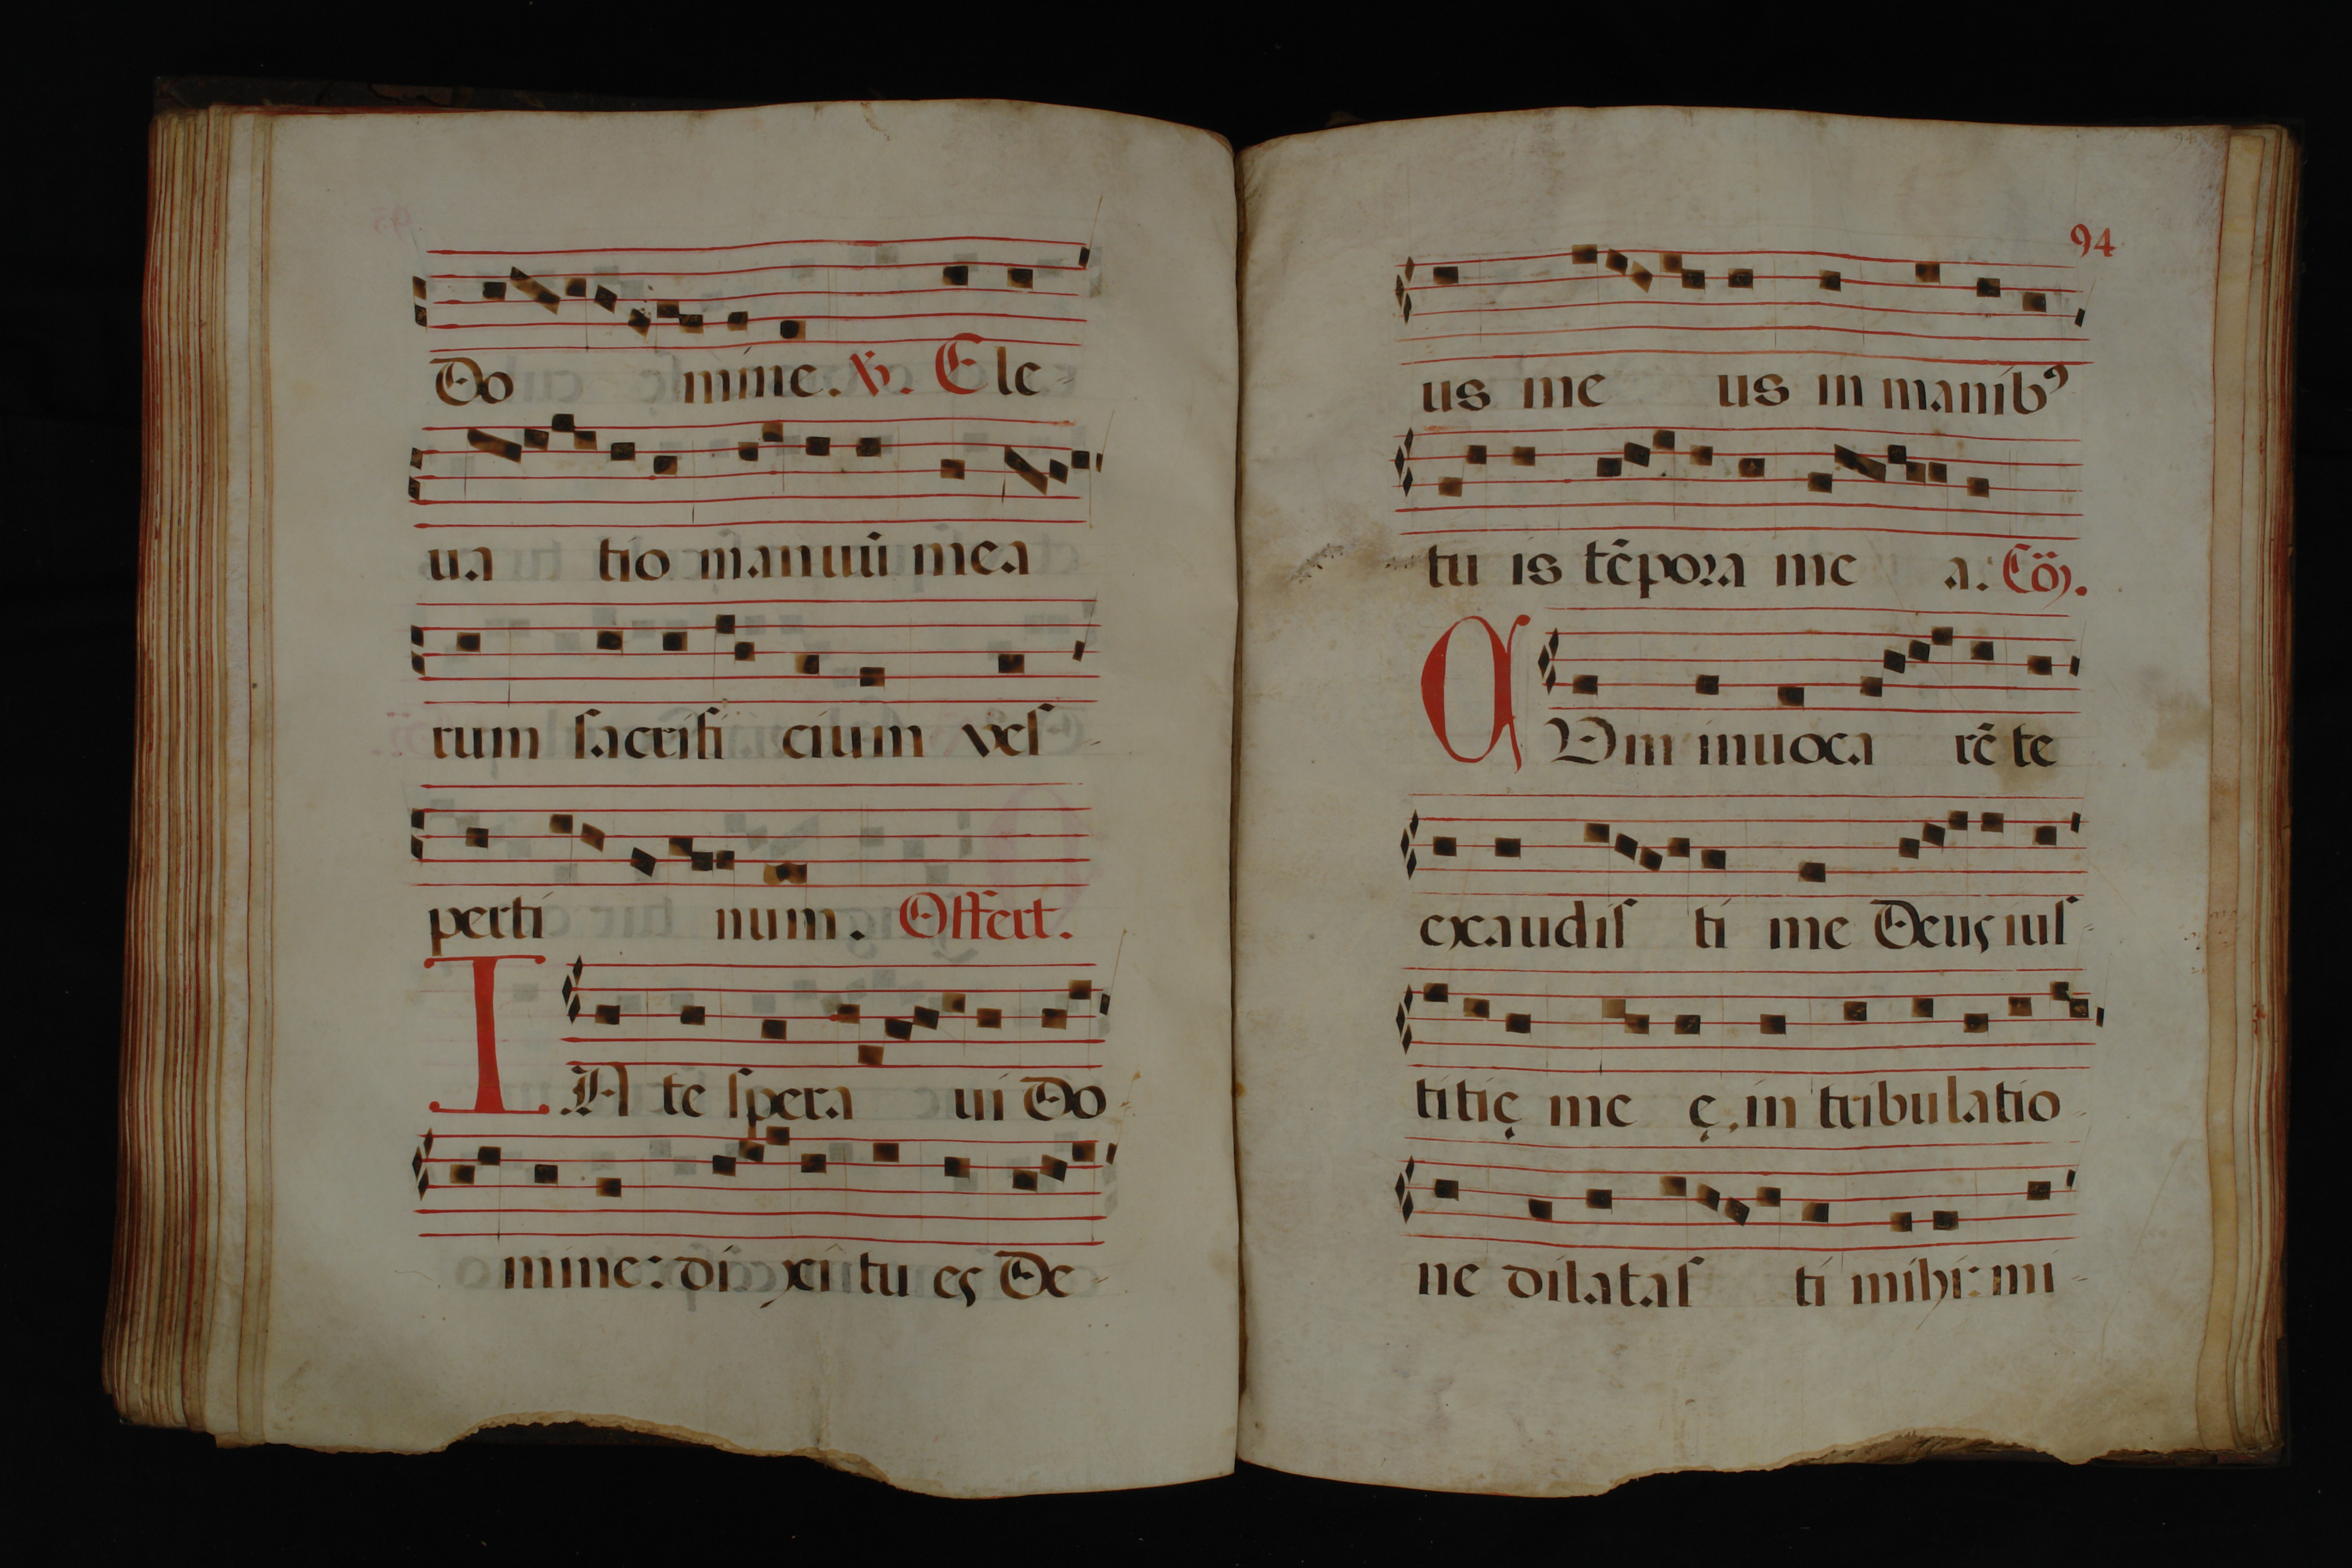 Do mine. ℣. Ele-
ua tio manuū mea
rum sacrifi cium ves-
perti num. Offert.
IN te spera ui Do-
mine: di xi tu es De-
94
us me us in manibꝰ
tu is tēpora me a. Cōȝ.
ADm inuoca rē te
exaudis ti me Deus ius-
titię me ę, in tribulatio-
ne dilatas ti mihi: mi-